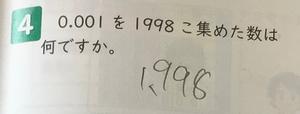 4 0.001を1998こ集めた数は
何ですか。
1,998